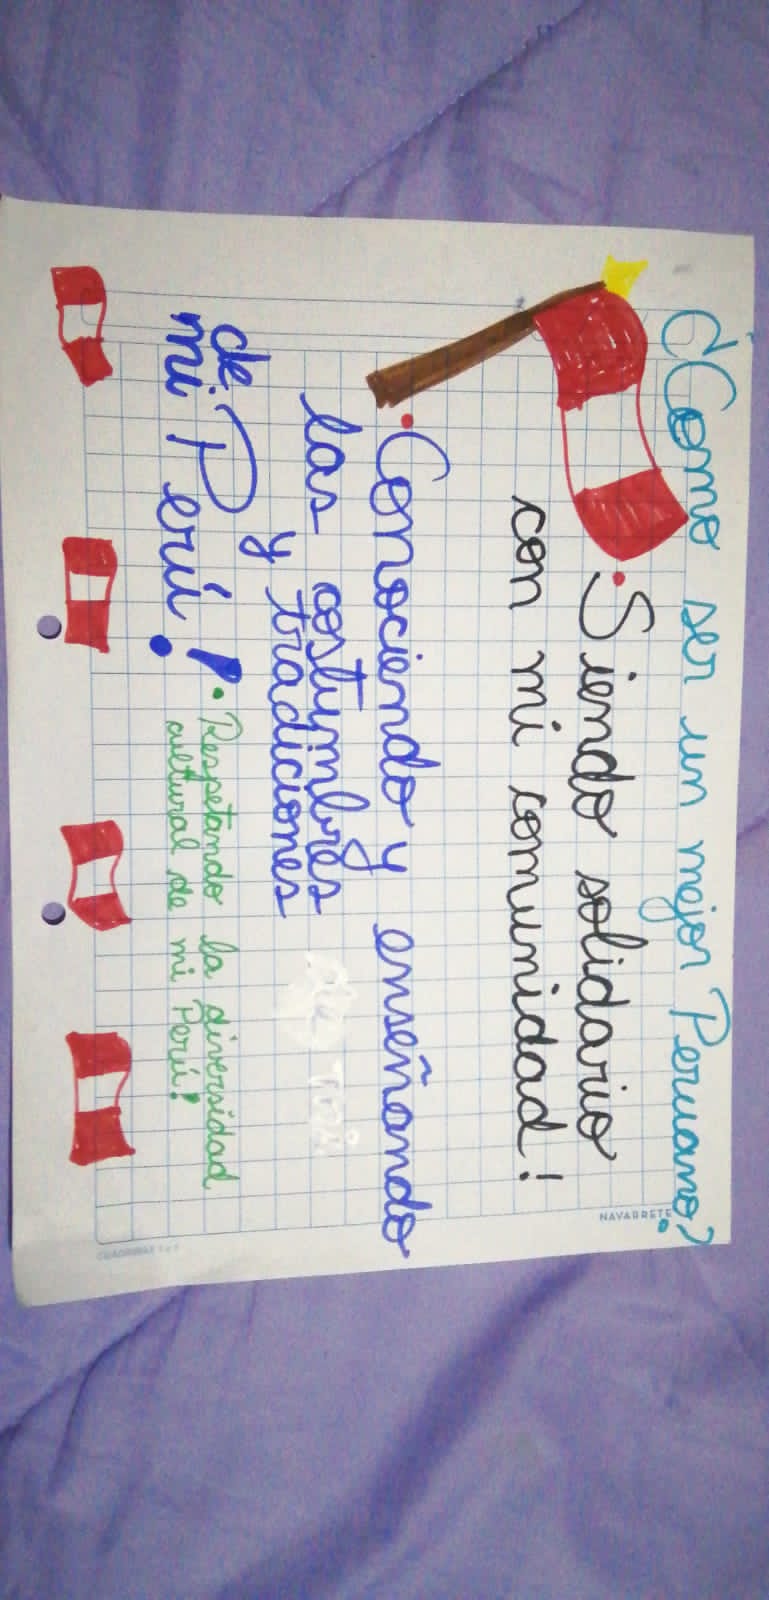 ¿Como ser un mejor Peruano?
• Siendo solidario
con mi comunidad!
• Conociendo y enseñando
las costumbres
y tradiciones
de
mi Perú!
• Respetando la diversidad
cultural de mi Perú!
NAVARRETE